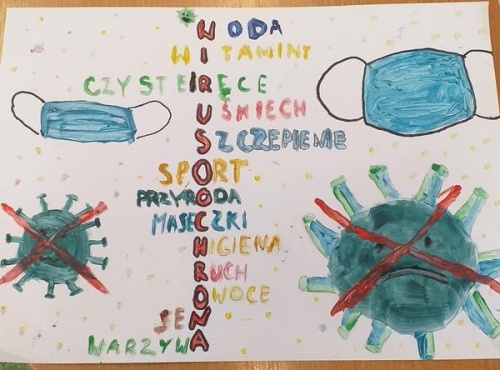 WODA
WITAMINY
CZYSTE RĘCE
UŚMIECH
SZCZEPIENIE
SPORT
PRZYRODA
MASECZKI
HIGIENA
RUCH
OWOCE
SEN
WARZYWA